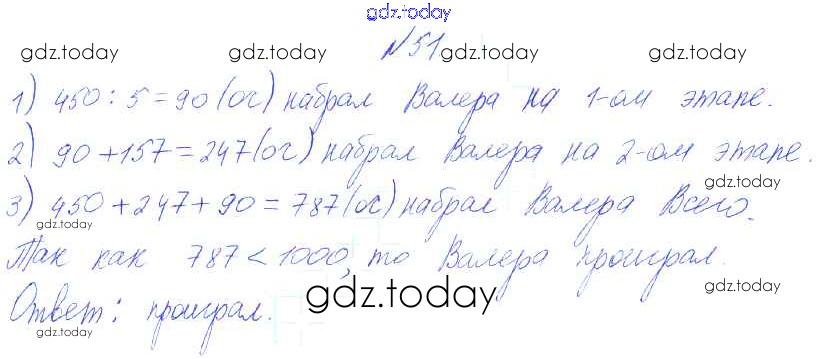 gdz.today
№51
gdz.today gdz.today gdz.today
1) 450 : 5 = 90 (оч) набрал Валера на 1-ом этапе.
gdz.today gdz.today gdz.today
2) 90 + 157 = 247 (оч) набрал Валера на 2-ом этапе.
gdz.today
3) 450 + 247 + 90 = 787 (оч) набрал Валера Всего.
gdz.today gdz.today
Так как 787 < 1000, то Валера проиграл.
gdz.today
Ответ: проиграл.
gdz.today gdz.today